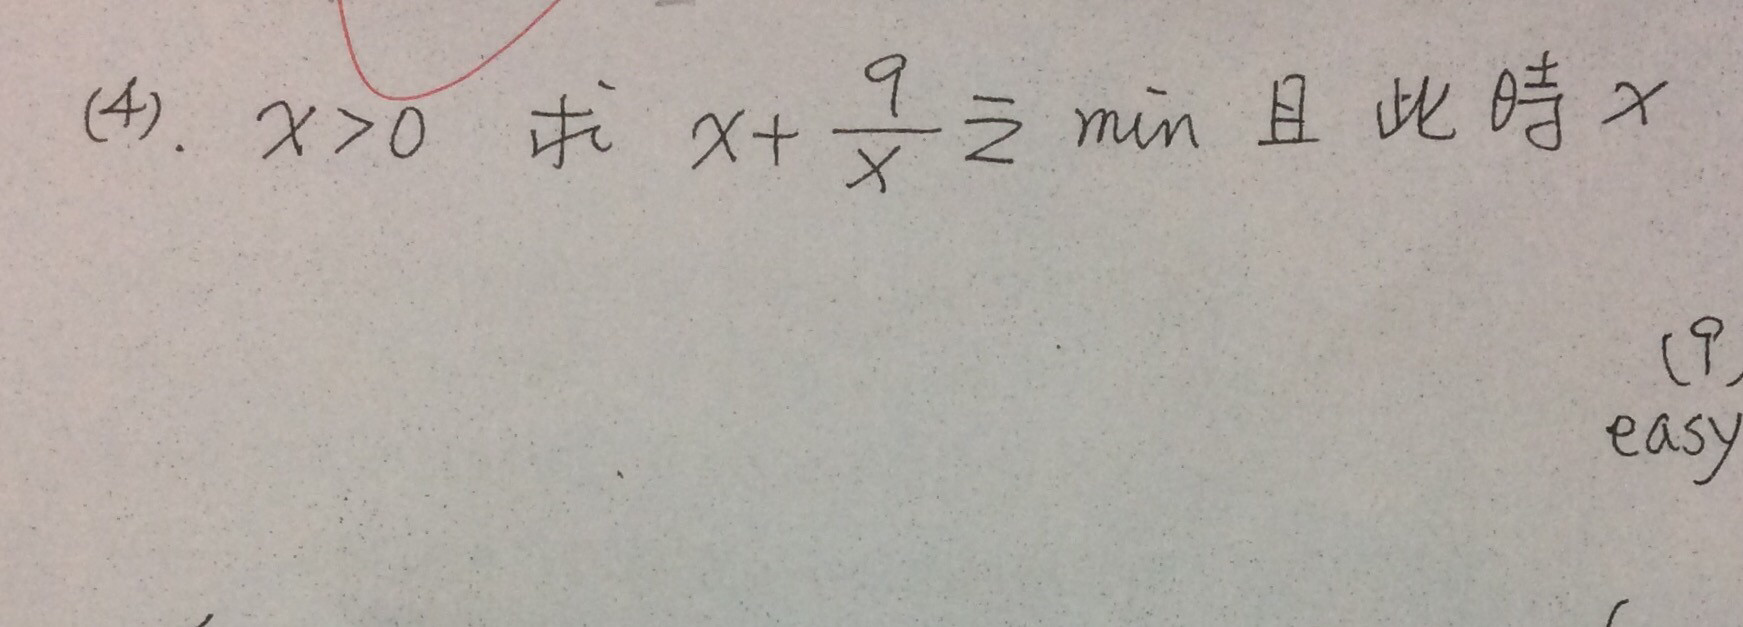 (4). x>0 求 x+9/x之 min 且 此時 x
(9)
easy